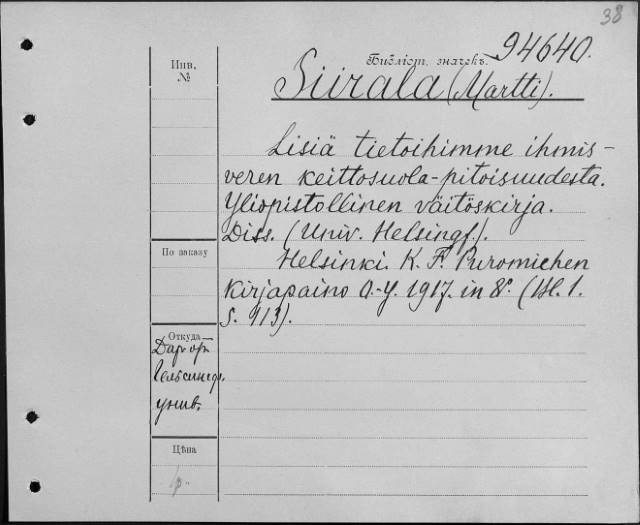 38
94640.
Библіот. значекъ.
Инв.
№
Siirala (Martti).
Lisiä tietoihimme ihmis-
veren keittosuola-pitoisuudesta.
Yliopistollinen väitöskirja.
Diss. (Univ. Helsingf.).
Helsinki. K. F. Puromiehen
Kirjapaino O.-Y. 1917. in 8°. (Bl. 1.
S. 113).
По заказу
Откуда
Даръ отъ
Гельсингф.
унив.
Цѣна